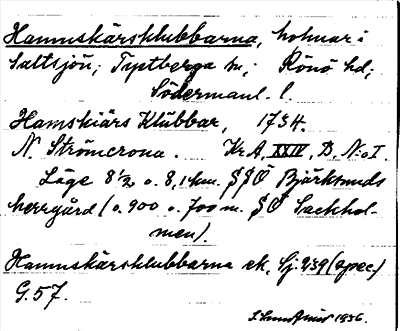 Hamnskärsklubbarna, holmar i
Saltsjön; Tystberga sn; Rönö hd;
Södermanl. l.
Hamskiärs Klubbar, 1734.
N. Strömcrona. Kr.A, XXIV, D, N:o I.
Läge 8½ o. 8,1 km. SSÖ Björksunds
herrgård (o. 900 o. 700 m. SÖ Sackhol-
men).
Hamnskärsklubbarna ek. Sj. 239 (spec.)
G. 57.
1936.